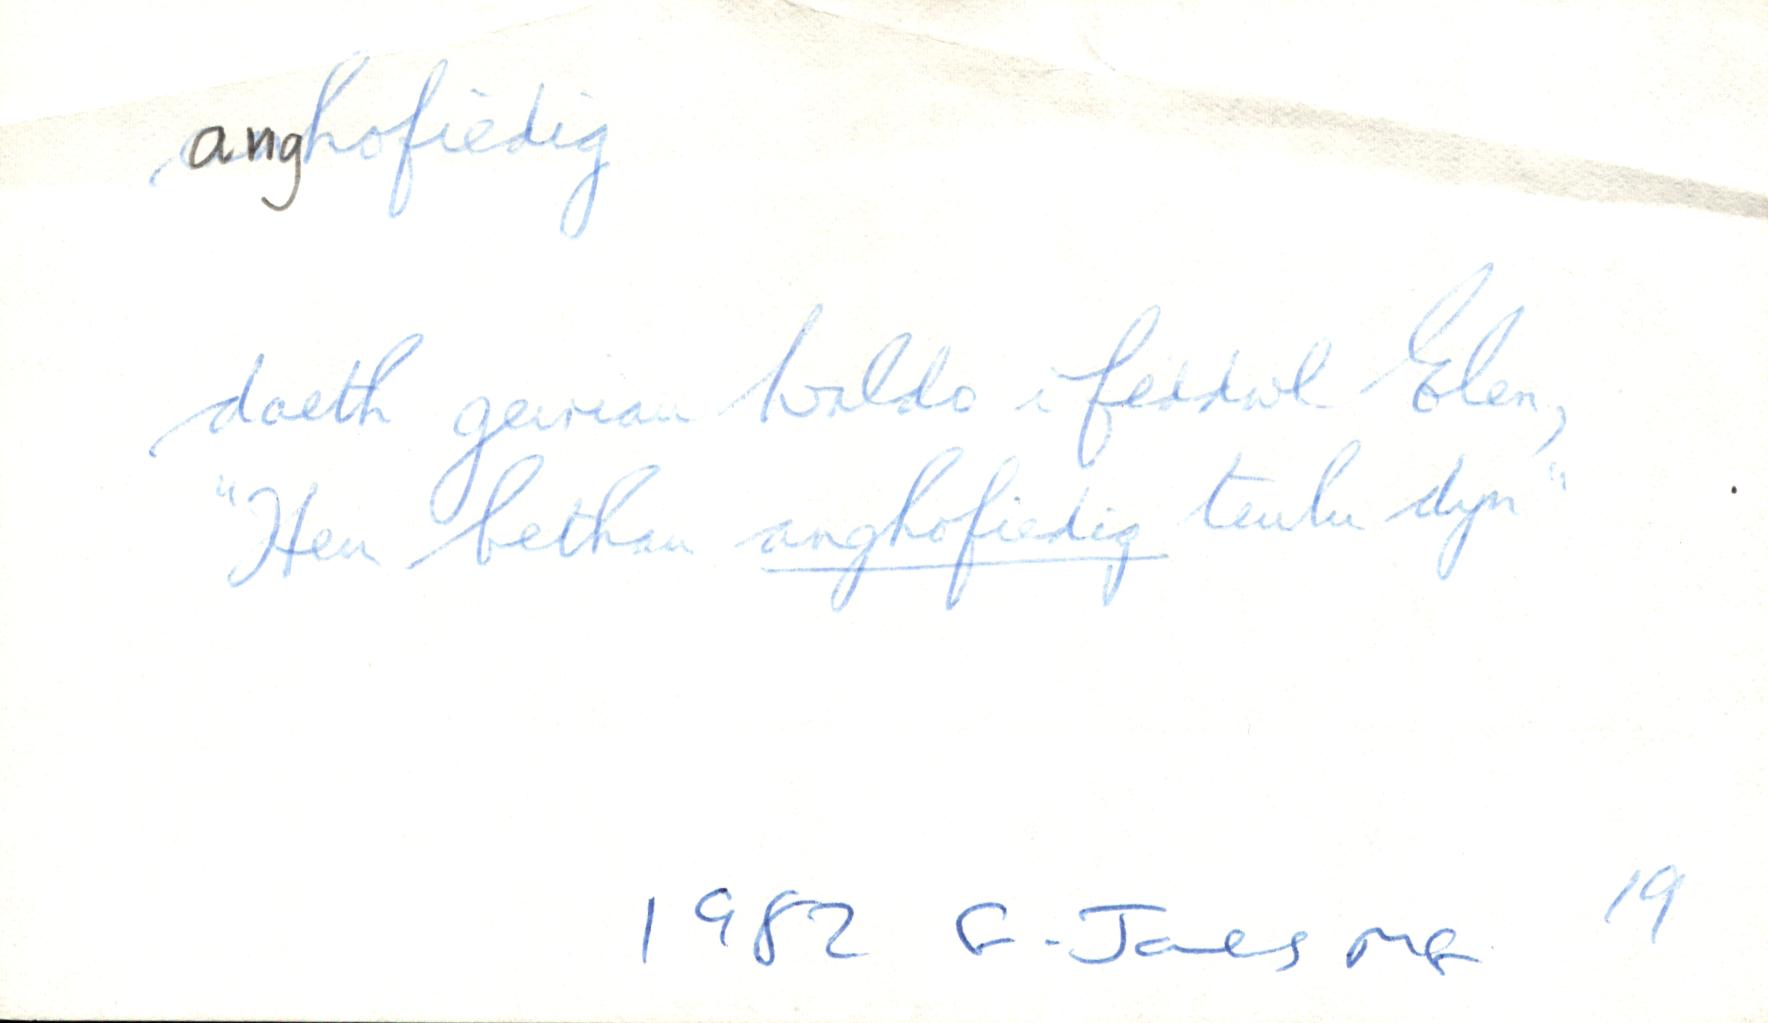 anghofiedig
daeth geiriau Waldo i feddwl Elen,
"Hen bethau anghofiedig teulu dyn"
1982 G. Jones MG 19